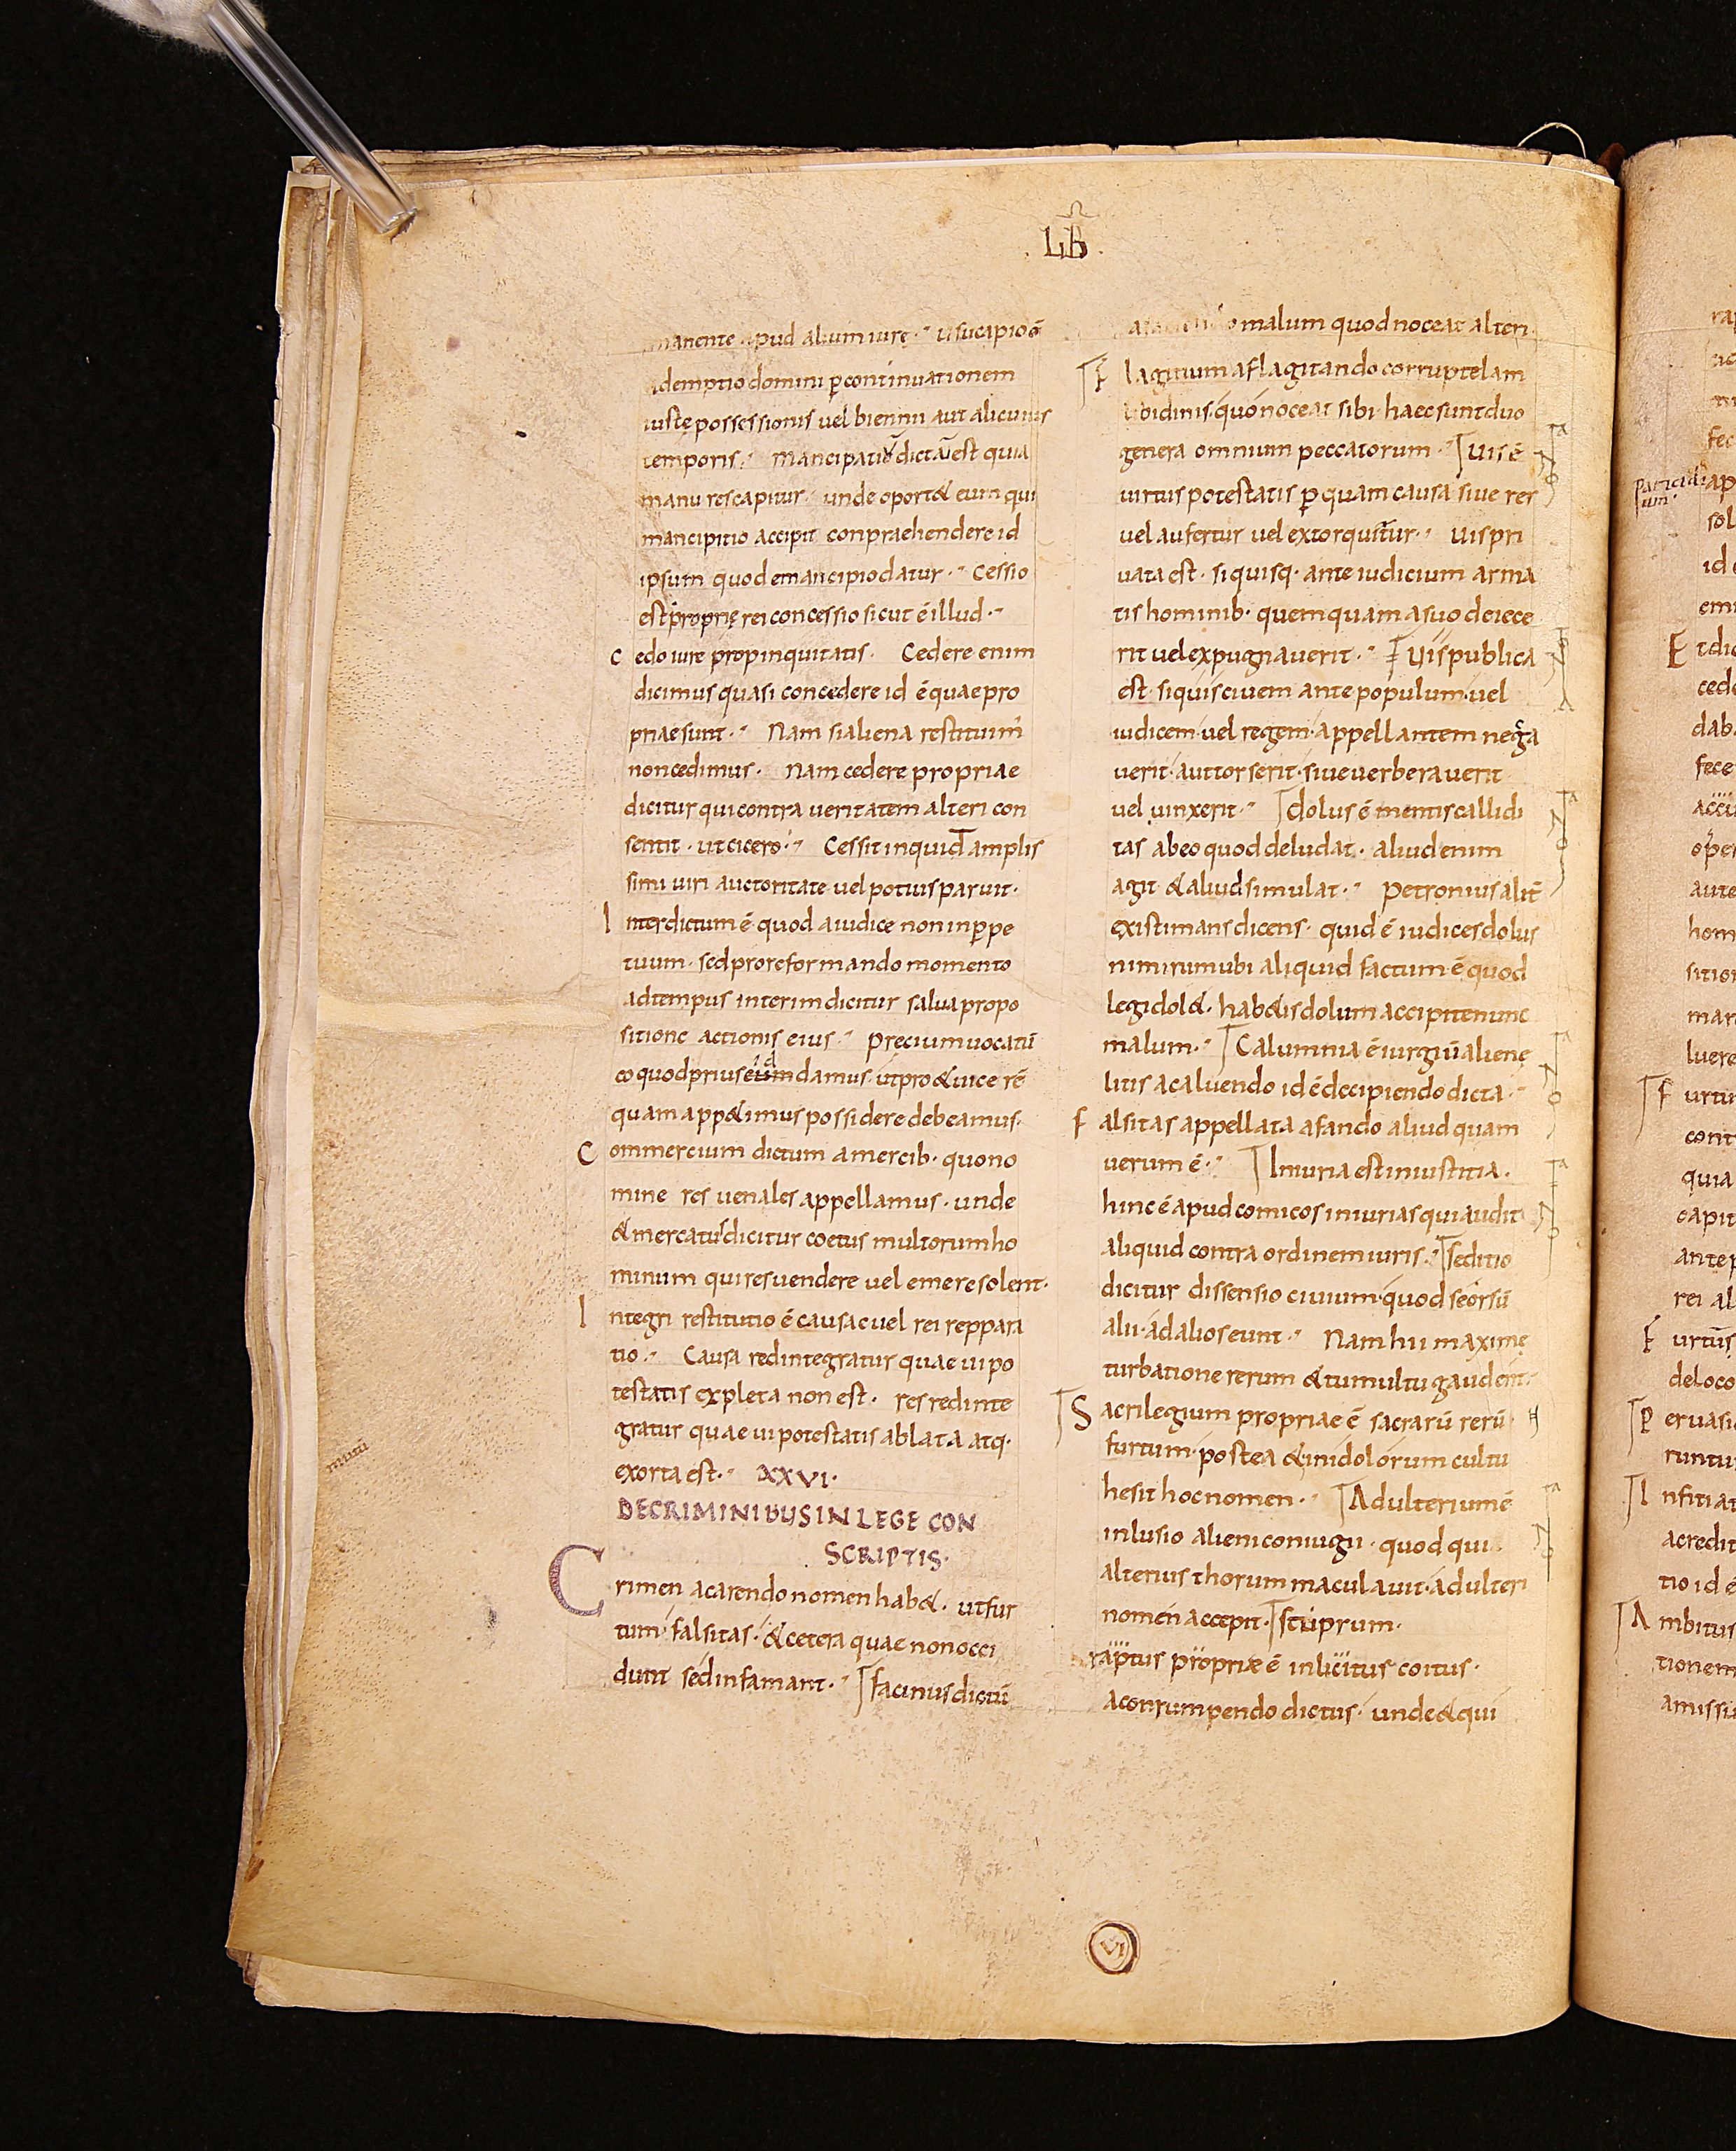 LIB
manente apud alium iure. usucapio ē
ademptio domini p continuationem
iustę possessionis uel biennii aut alicuius
temporis. Mancipatio dicta est quia
manu res capitur. unde oport& eum qui
mancipitio accipit conpraehendere id
ipsum quod emancipio datur. Cessio
est proprię rei concessio sicut ē illud.
Cedo iure propinquitatis. Cedere enim
dicimus quasi concedere id ē quae pro
priae sunt. Nam si aliena restituim
non cedimus. Nam cedere propriae
dicitur qui contra ueritatem alteri con
sentit. ut cicero. Cessit inquid amplis
simi uiri auctoritate uel potius paruit.
Interdictum ē quod a iudice non in ppe
tuum. sed pro reformando momento
ad tempus interim dicitur salua propo
sitione actionis eius. Precium uocatū
eo quod prius eum damus. ut pro & uice rē
quam app&imus possidere debeamus.
Commercium dictum a mercib. quo no
mine res uenales appellamus. unde
& mercatus dicitur coetus multorum ho
minum qui res uendere uel emere solent.
Integri restitutio ē causae uel rei reppara
tio. Causa redintegratur quae ui po
testatis expleta non est. res redinte
gratur quae ui potestatis ablata atq.
exorta est. XXVI.
DE CRIMINIBUS IN LEGE CON
SCRIPTIS.
Crimen a carendo nomen hab&. ut fur
tum. falsitas. & cetera quae non occi
dunt sed infamant. facinus dictū
malum quod noceat alteri
Flagitium a flagitando corruptelam
libidinis. quo noceat sibi. haec sunt duo
genera omnium peccatorum. Uis ē
uirtus potestatis p quam causa siue res
uel aufertur uel extorquitur. Uis pri
uata est. si quisq. ante iudicium arma
tis hominib. quemquam a suo deiece
rit uel expugnauerit. Uis publica
est. si quis ciuem ante populum. uel
iudicem. uel regem. appellantem nega
uerit. aut torserit. siue uerberauerit
uel uinxerit. dolus ē mentis callidi
tas ab eo quod deludat. aliud enim
agit & aliud simulat. Petronius alit
existimans dicens. quid ē iudices dolus
nimirum ubi aliquid factum ē quod
legi dol&. hab&is dolum accipite nunc
malum. Calumnia ē iurgiū alienę
litis a caluendo id ē decipiendo dicta.
Falsitas appellata a fando aliud quam
uerum ē. Iniuria est iniustitia.
hinc ē apud comicos iniurias qui audit
aliquid contra ordinem iuris. seditio
dicitur dissensio ciuium. quod seorsū
alii. ad alios eunt. Nam hii maximę
turbatione rerum & tumultu gaudent.
Sacrilegium propriae ē sacrarū rerū
furtum. postea & in idolorum cultu
hesit hoc nomen. Adulterium ē
inlusio alieni coniugii. quod quia
alterius thorum maculauit. adulteri
nomen accepit. stuprum.
raptus propriae ē inlicitus coitus.
a corrumpendo dictus. unde & qui
VI
Paricidi
um